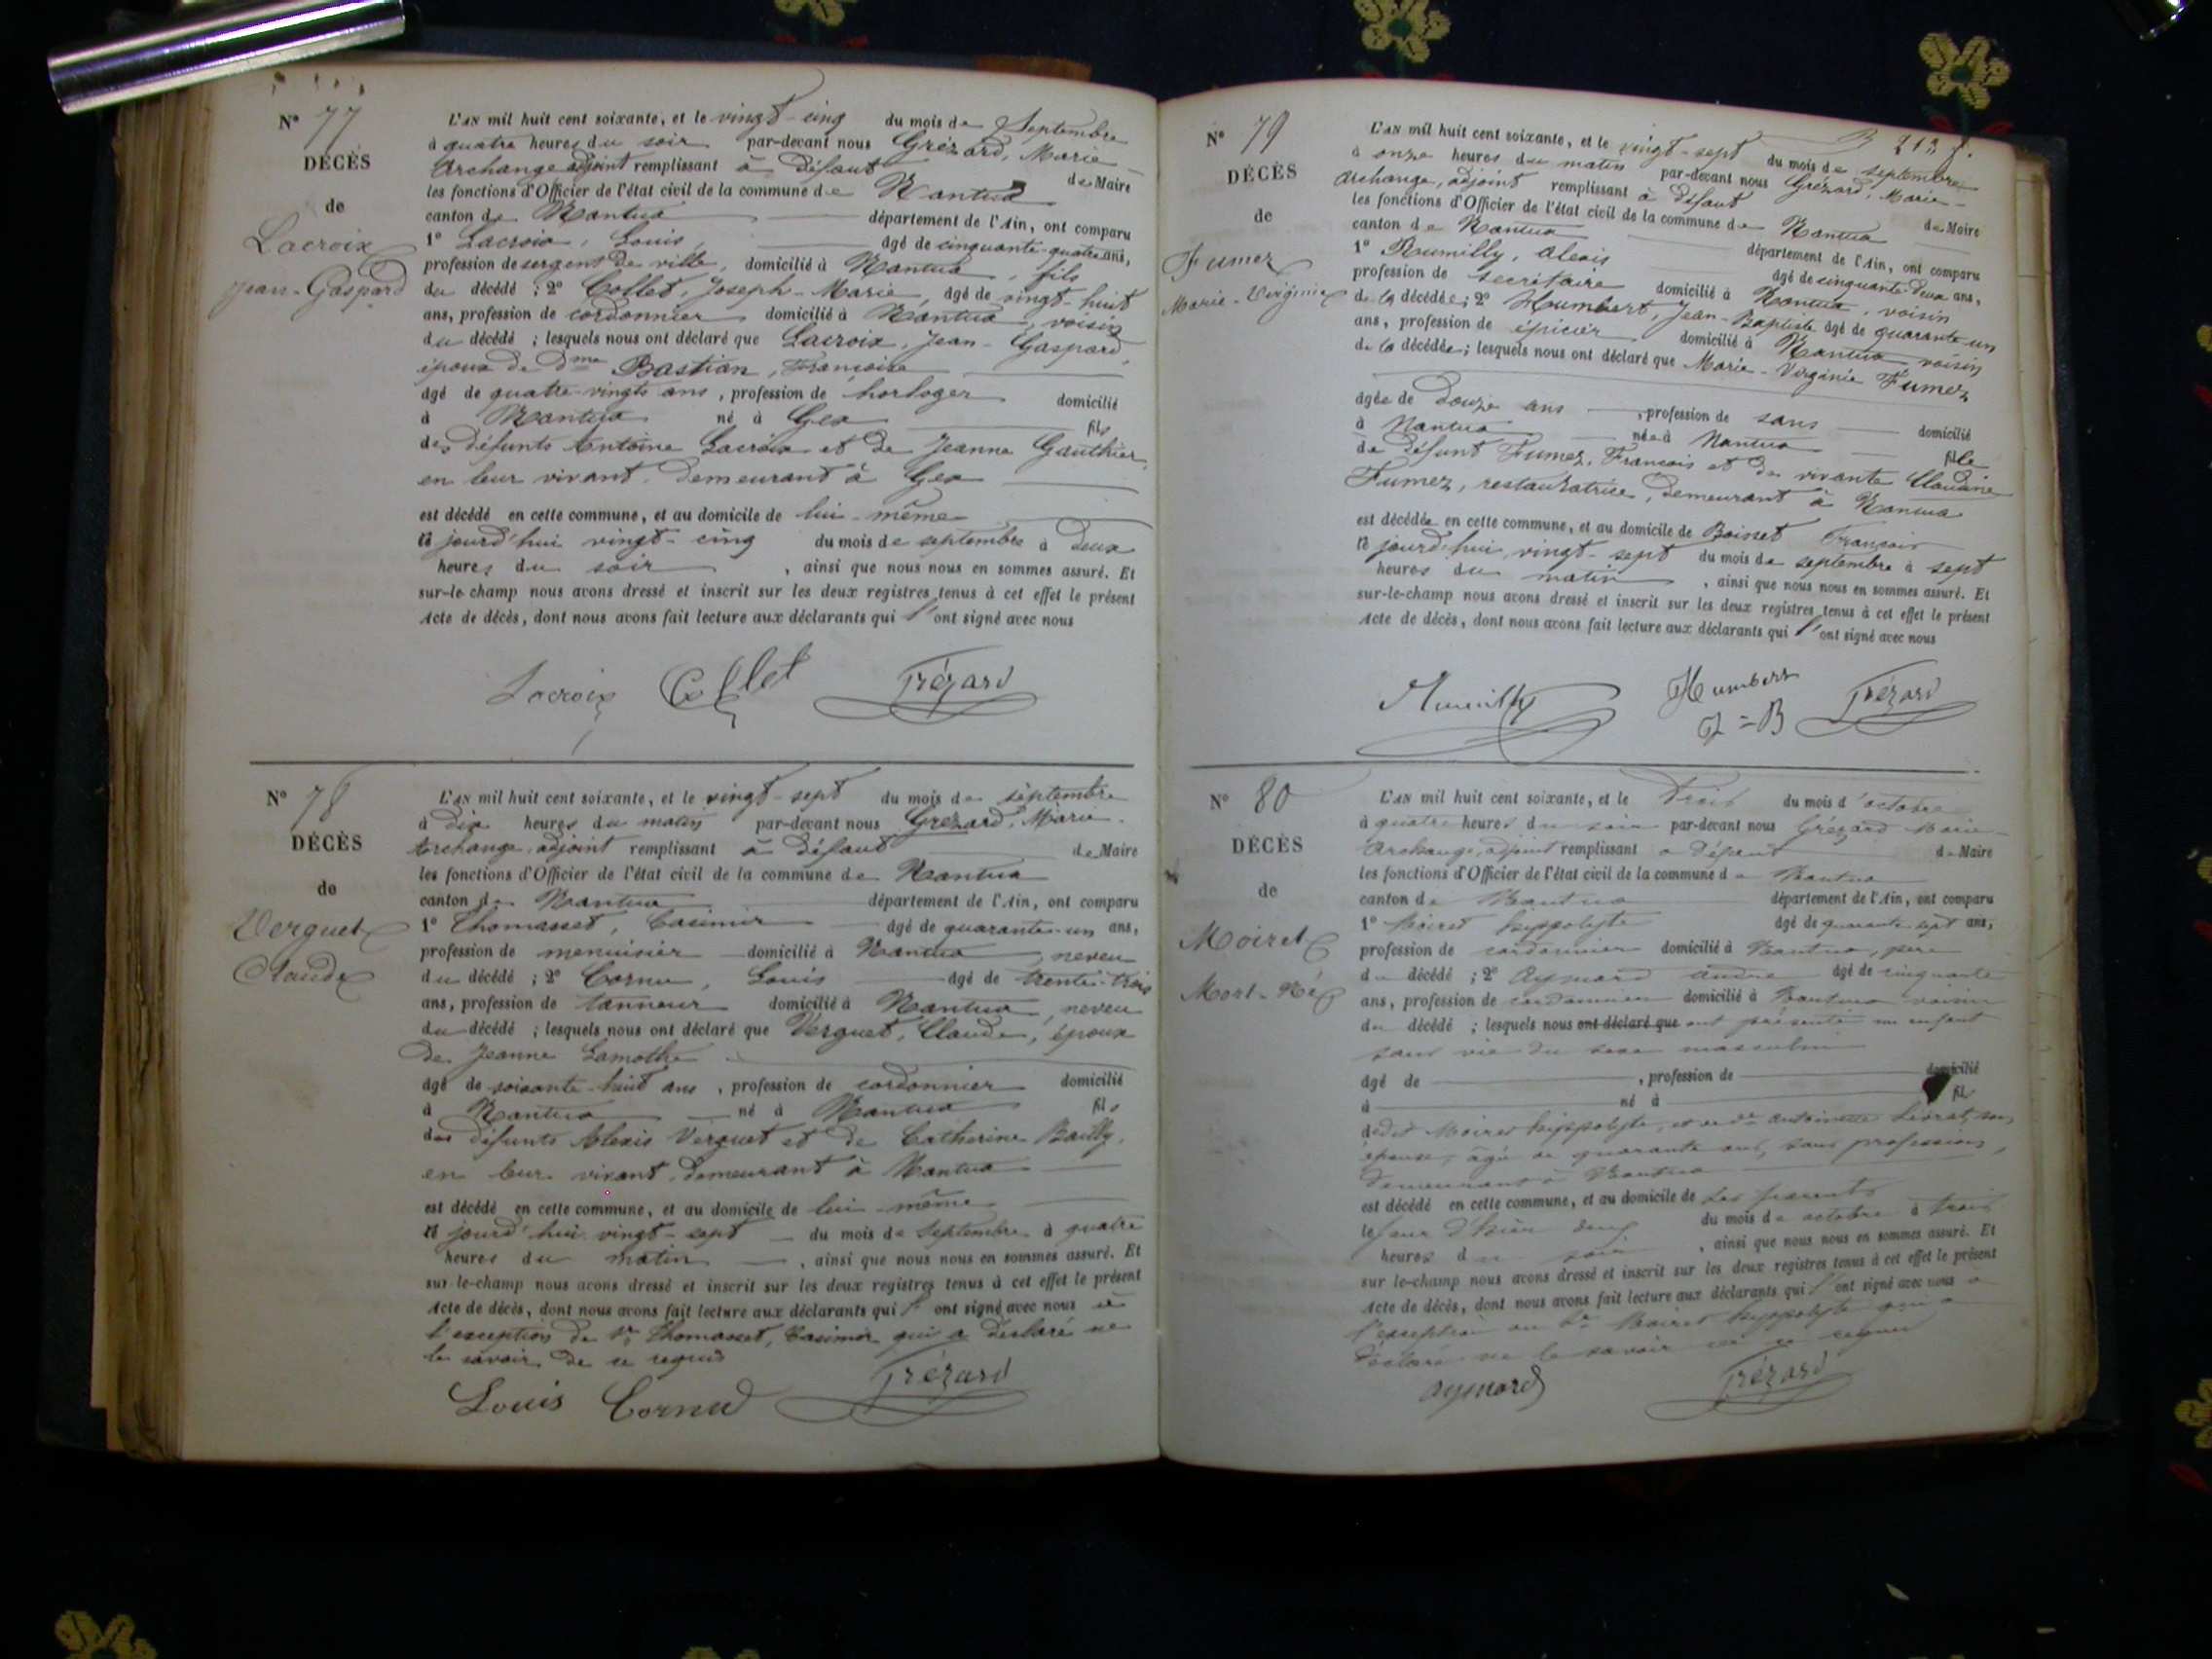 N° 77
DÉCÈS
de
Lacroix
Jean-Gaspard
L'AN mil huit cent soixante, et le vingt-cinq du mois de Septembre
à quatre heures du soir par-devant nous Grézard, Marie
Archange adjoint remplissant à défaut de Maire
les fonctions d'Officier de l'état civil de la commune de Nantua
canton de Nantua département de l'Ain, ont comparu
1° Lacroix, Louis, âgé de cinquante-quatre ans,
profession de sergent de ville, domicilié à Nantua, fils
du décédé ; 2° Collet, Joseph-Marie, âgé de vingt-huit
ans, profession de cordonnier domicilié à Nantua, voisin
du décédé ; lesquels nous ont déclaré que Lacroix, Jean-Gaspard,
époux de Dme Bastian, Françoise
âgé de quatre-vingts ans, profession de horloger domicilié
à Nantua né à Gex fils
des défunts Antoine Lacroix et de Jeanne Gauthier,
en leur vivant demeurant à Gex
est décédé en cette commune, et au domicile de lui-même
jourd'hui vingt-cinq du mois de septembre à deux
heures du soir, ainsi que nous nous en sommes assuré. Et
sur-le-champ nous avons dressé et inscrit sur les deux registres tenus à cet effet le présent
Acte de décès, dont nous avons fait lecture aux déclarants qui l'ont signé avec nous
Lacroix Collet Grézard
N° 78
DÉCÈS
de
Verguet
Claude
L'AN mil huit cent soixante, et le vingt-sept du mois de septembre
à dix heures du matin par-devant nous Grézard, Marie-
Archange, adjoint remplissant à défaut de Maire
les fonctions d'Officier de l'état civil de la commune de Nantua
canton de Nantua département de l'Ain, ont comparu
1° Thomasset, Casimir âgé de quarante-un ans,
profession de menuisier domicilié à Nantua, neveu
du décédé ; 2° Cornu, Louis âgé de trente-trois
ans, profession de tanneur domicilié à Nantua, neveu
du décédé ; lesquels nous ont déclaré que Verguet, Claude, époux
de Jeanne Lamothe
âgé de soixante-huit ans, profession de cordonnier domicilié
à Nantua né à Nantua fils
des défunts Alexis Verguet et de Catherine Bailly,
en leur vivant demeurant à Nantua
est décédé en cette commune, et au domicile de lui-même
jourd'hui vingt-sept du mois de septembre à quatre
heures du matin, ainsi que nous nous en sommes assuré. Et
sur-le-champ nous avons dressé et inscrit sur les deux registres tenus à cet effet le présent
Acte de décès, dont nous avons fait lecture aux déclarants qui l'ont signé avec nous à
l'exception de Sr Thomasset, Casimir qui a déclaré ne
le savoir de ce requis
Louis Cornu Grézard
213
N° 79
DÉCÈS
de
Fumez
Marie-Virginie
L'AN mil huit cent soixante, et le vingt-sept du mois de septembre
à onze heures du matin par-devant nous Grézard, Marie-
Archange, adjoint remplissant à défaut de Maire
les fonctions d'Officier de l'état civil de la commune de Nantua
canton de Nantua département de l'Ain, ont comparu
1° Rumilly, Alexis âgé de cinquante-deux ans,
profession de secrétaire domicilié à Nantua, voisin
de la décédée ; 2° Humbert, Jean-Baptiste âgé de quarante-un
ans, profession de épicier domicilié à Nantua, voisin
de la décédée ; lesquels nous ont déclaré que Marie-Virginie Fumez
âgée de douze ans, profession de sans domicilié
à Nantua née à Nantua fille
de défunt Fumez, François et de vivante Claudine
Fumez, restauratrice, demeurant à Nantua
est décédée en cette commune, et au domicile de Boisset François
jourd'hui, vingt-sept du mois de septembre à sept
heures du matin, ainsi que nous nous en sommes assuré. Et
sur-le-champ nous avons dressé et inscrit sur les deux registres tenus à cet effet le présent
Acte de décès, dont nous avons fait lecture aux déclarants qui l'ont signé avec nous
Rumilly Humbert J=B Grézard
N° 80
DÉCÈS
de
Moiret
Mort-Né
L'AN mil huit cent soixante, et le trois du mois d'octobre
à quatre heures du soir par-devant nous Grézard Marie-
Archange, adjoint remplissant à défaut de Maire
les fonctions d'Officier de l'état civil de la commune de Nantua
canton de Nantua département de l'Ain, ont comparu
1° Moiret hippolyte âgé de quarante sept ans,
profession de cordonnier domicilié à Nantua, père
du décédé ; 2° Aymard andré âgé de cinquante
ans, profession de cordonnier domicilié à Nantua voisin
du décédé ; lesquels nous ont déclaré que ont présenté un enfant
sans vie du sexe masculin
âgé de, profession de domicilié
à né à fil
dudit Moiret hippolyte, et de de antoinette son
épouse, âgée de quarante ans, sans profession,
demeurant à Nantua
est décédé en cette commune, et au domicile de ses parents
le jour d'hier deux du mois de octobre à trois
heures du soir, ainsi que nous nous en sommes assuré. Et
sur-le-champ nous avons dressé et inscrit sur les deux registres tenus à cet effet le présent
Acte de décès, dont nous avons fait lecture aux déclarants qui l'ont signé avec nous à
l'exception du Sr Moiret hippolyte qui a
déclaré ne le savoir de ce requis
aymard Grézard